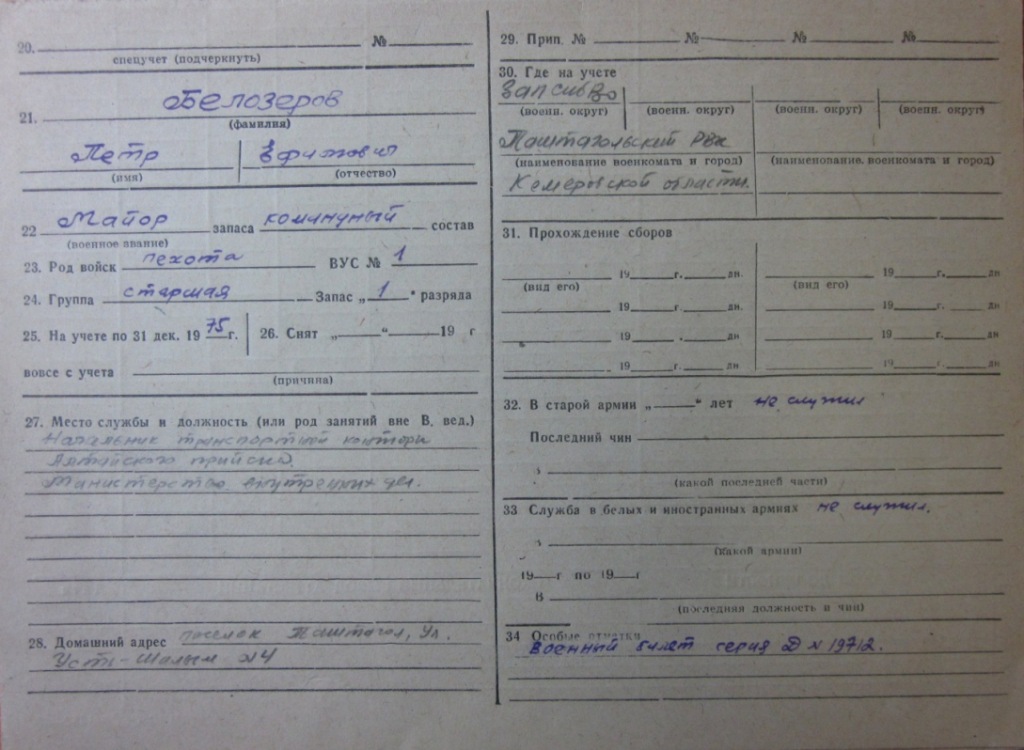 20. №
спецучет (подчеркнуть)
21. Белозеров
(фамилия)
Петр Ефимович
(имя) (отчество)
22 Майор запаса командный состав
(военное звание)
23. Род войск пехота ВУС № 1
24. Группа старшая Запас „ 1 “ разряда
25. На учете по 31 дек. 1975 г. 26. Снят „ “ 19 г
вовсе с учета
(причина)
27. Место службы и должность (или род занятий вне В. вед.)
Начальник транспортной конторы
Алтайского прииска.
Министерство внутренних дел.
28. Домашний адрес поселок Таштагол, ул.
Усть-Шалым №4
29. Прип. № № № №
30. Где на учете
ЗапсибВО
(военн. округ) (военн. округ) (военн. округ) (военн. округ)
Таштагольский РВК
(наименование военкомата и город) (наименование военкомата и город)
Кемеровской области.
31. Прохождение сборов
19 г. дн. 19 г. дн
(вид его) (вид его)
19 г. дн. 19 г. дн
19 . дн 19 г. дн
19 г. дн 19 г. дн
32. В старой армии „ “ лет не служил
Последний чин
(какой последней части)
33 Служба в белых и иностранных армиях не служил.
(какой армии)
19 г по 19 г
В
(последняя должность и чин)
34 Особые отметки
Военный билет серия Д № 19712.